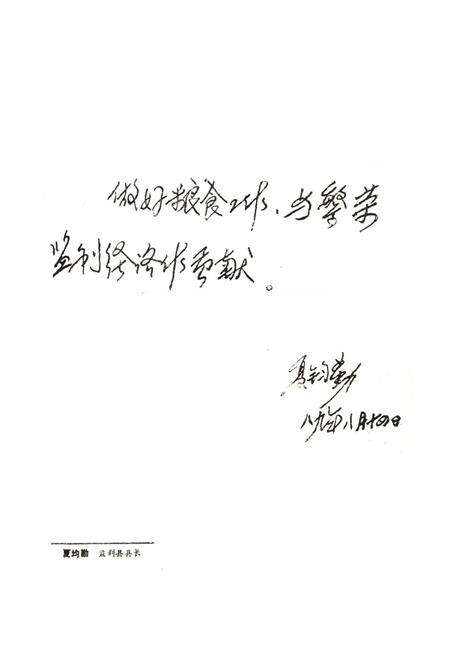 做好粮食工作、为繁荣
监利经济作贡献。
夏钧勤
八九年八月十四日
夏均勤 监利县县长